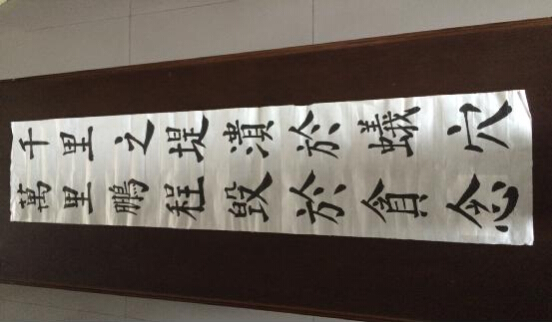 千里之堤潰於蟻穴
萬里鵬程毀於貪念